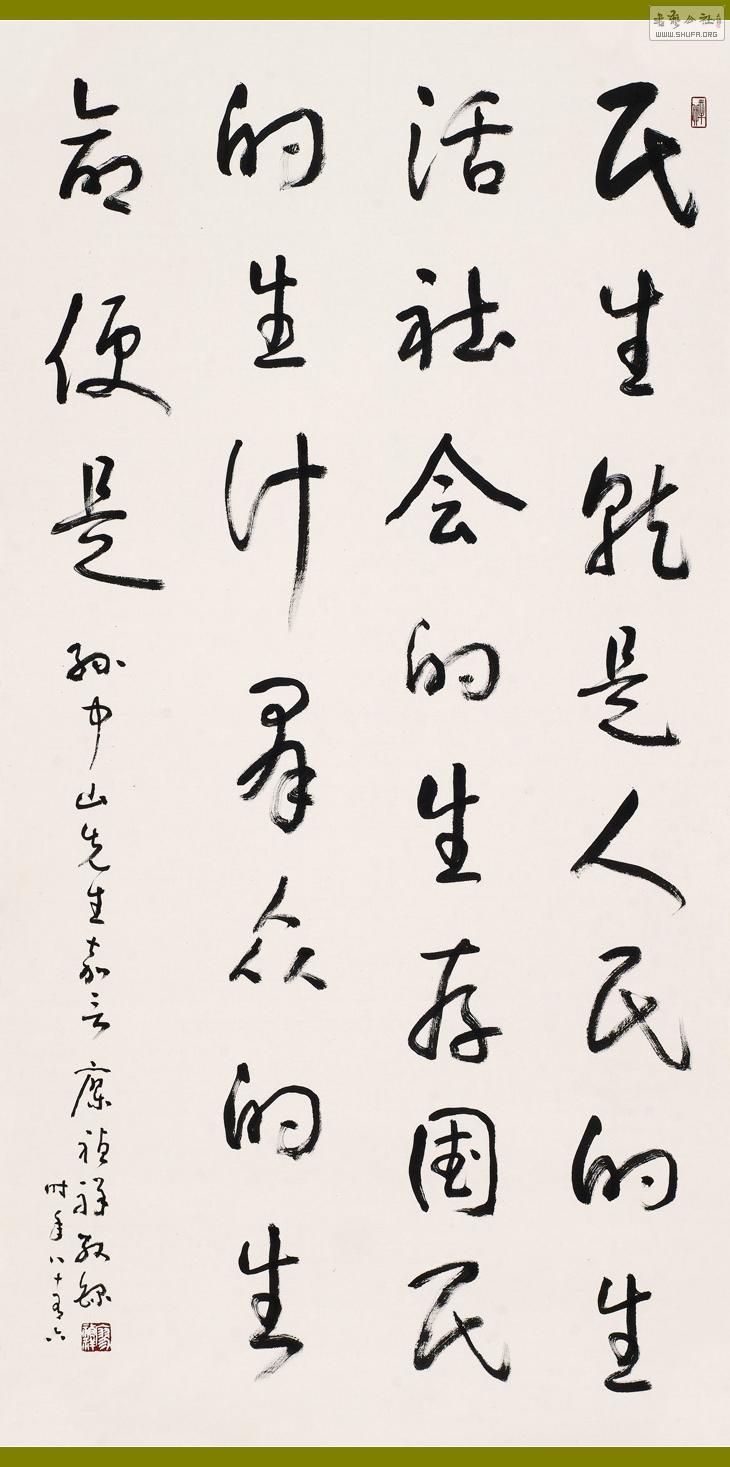 民生就是人民的生
活社会的生存国民
的生计羣众的生
命便是 孫中山先生嘉言 廖禎祥敬錄
时年八十有六
WWW.SHUFA.ORG